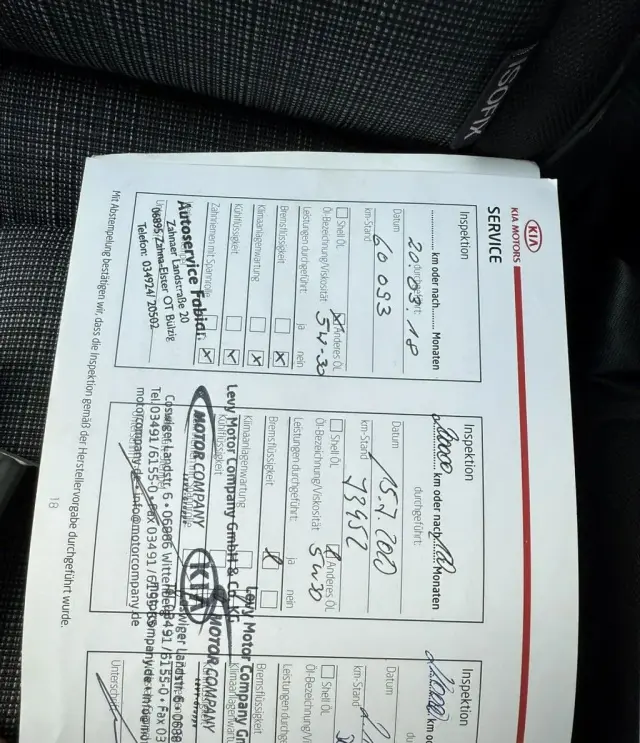 ISOFIX
KIA
KIA MOTORS
SERVICE
Inspektion
............ km oder nach......... Monaten
durchgeführt:
Datum
20.03.18
km-Stand
60 093
Shell ÖL
x Anderes ÖL
Öl-Bezeichnung/Viskosität
5W-30
Leistungen durchgeführt:
ja
nein
Bremsflüssigkeit
x
Klimaanlagenwartung
x
Kühlflüssigkeit
x
Zahnriemen mit Spannrolle
x
Autoservice Fabian
Zahnaer Landstraße 20
06895 Zahna-Elster OT Bülzig
Telefon: 034924/ 20502
Inspektion
km oder nach
Monaten
durchgeführt:
Datum
15.7.2020
km-Stand
73452
Shell ÖL
x Anderes ÖL
Öl-Bezeichnung/Viskosität
5W30
Leistungen durchgeführt:
ja
nein
Bremsflüssigkeit
x
Klimaanlagenwartung
Kühlflüssigkeit
Levy Motor Company GmbH & Co. KG
MOTOR COMPANY
KIA
Coswiger Landstr. 6 • 06886 Wittenberg
Tel.03491/6155-0 • Fax 03491/
motorcompany.de • info@motorcompany.de
Inspektion
km o
Datum
km-Stand
Shell ÖL
Öl-Bezeichnung/Viskosität
Leistungen durchge
Bremsflüssigkeit
Klimaanlagenwart
Levy Motor Company Gm
MOTOR COMPANY
Unterschri
Mit Abstempelung bestätigen wir, dass die Inspektion gemäß der Herstellervorgabe durchgeführt wurde.
18